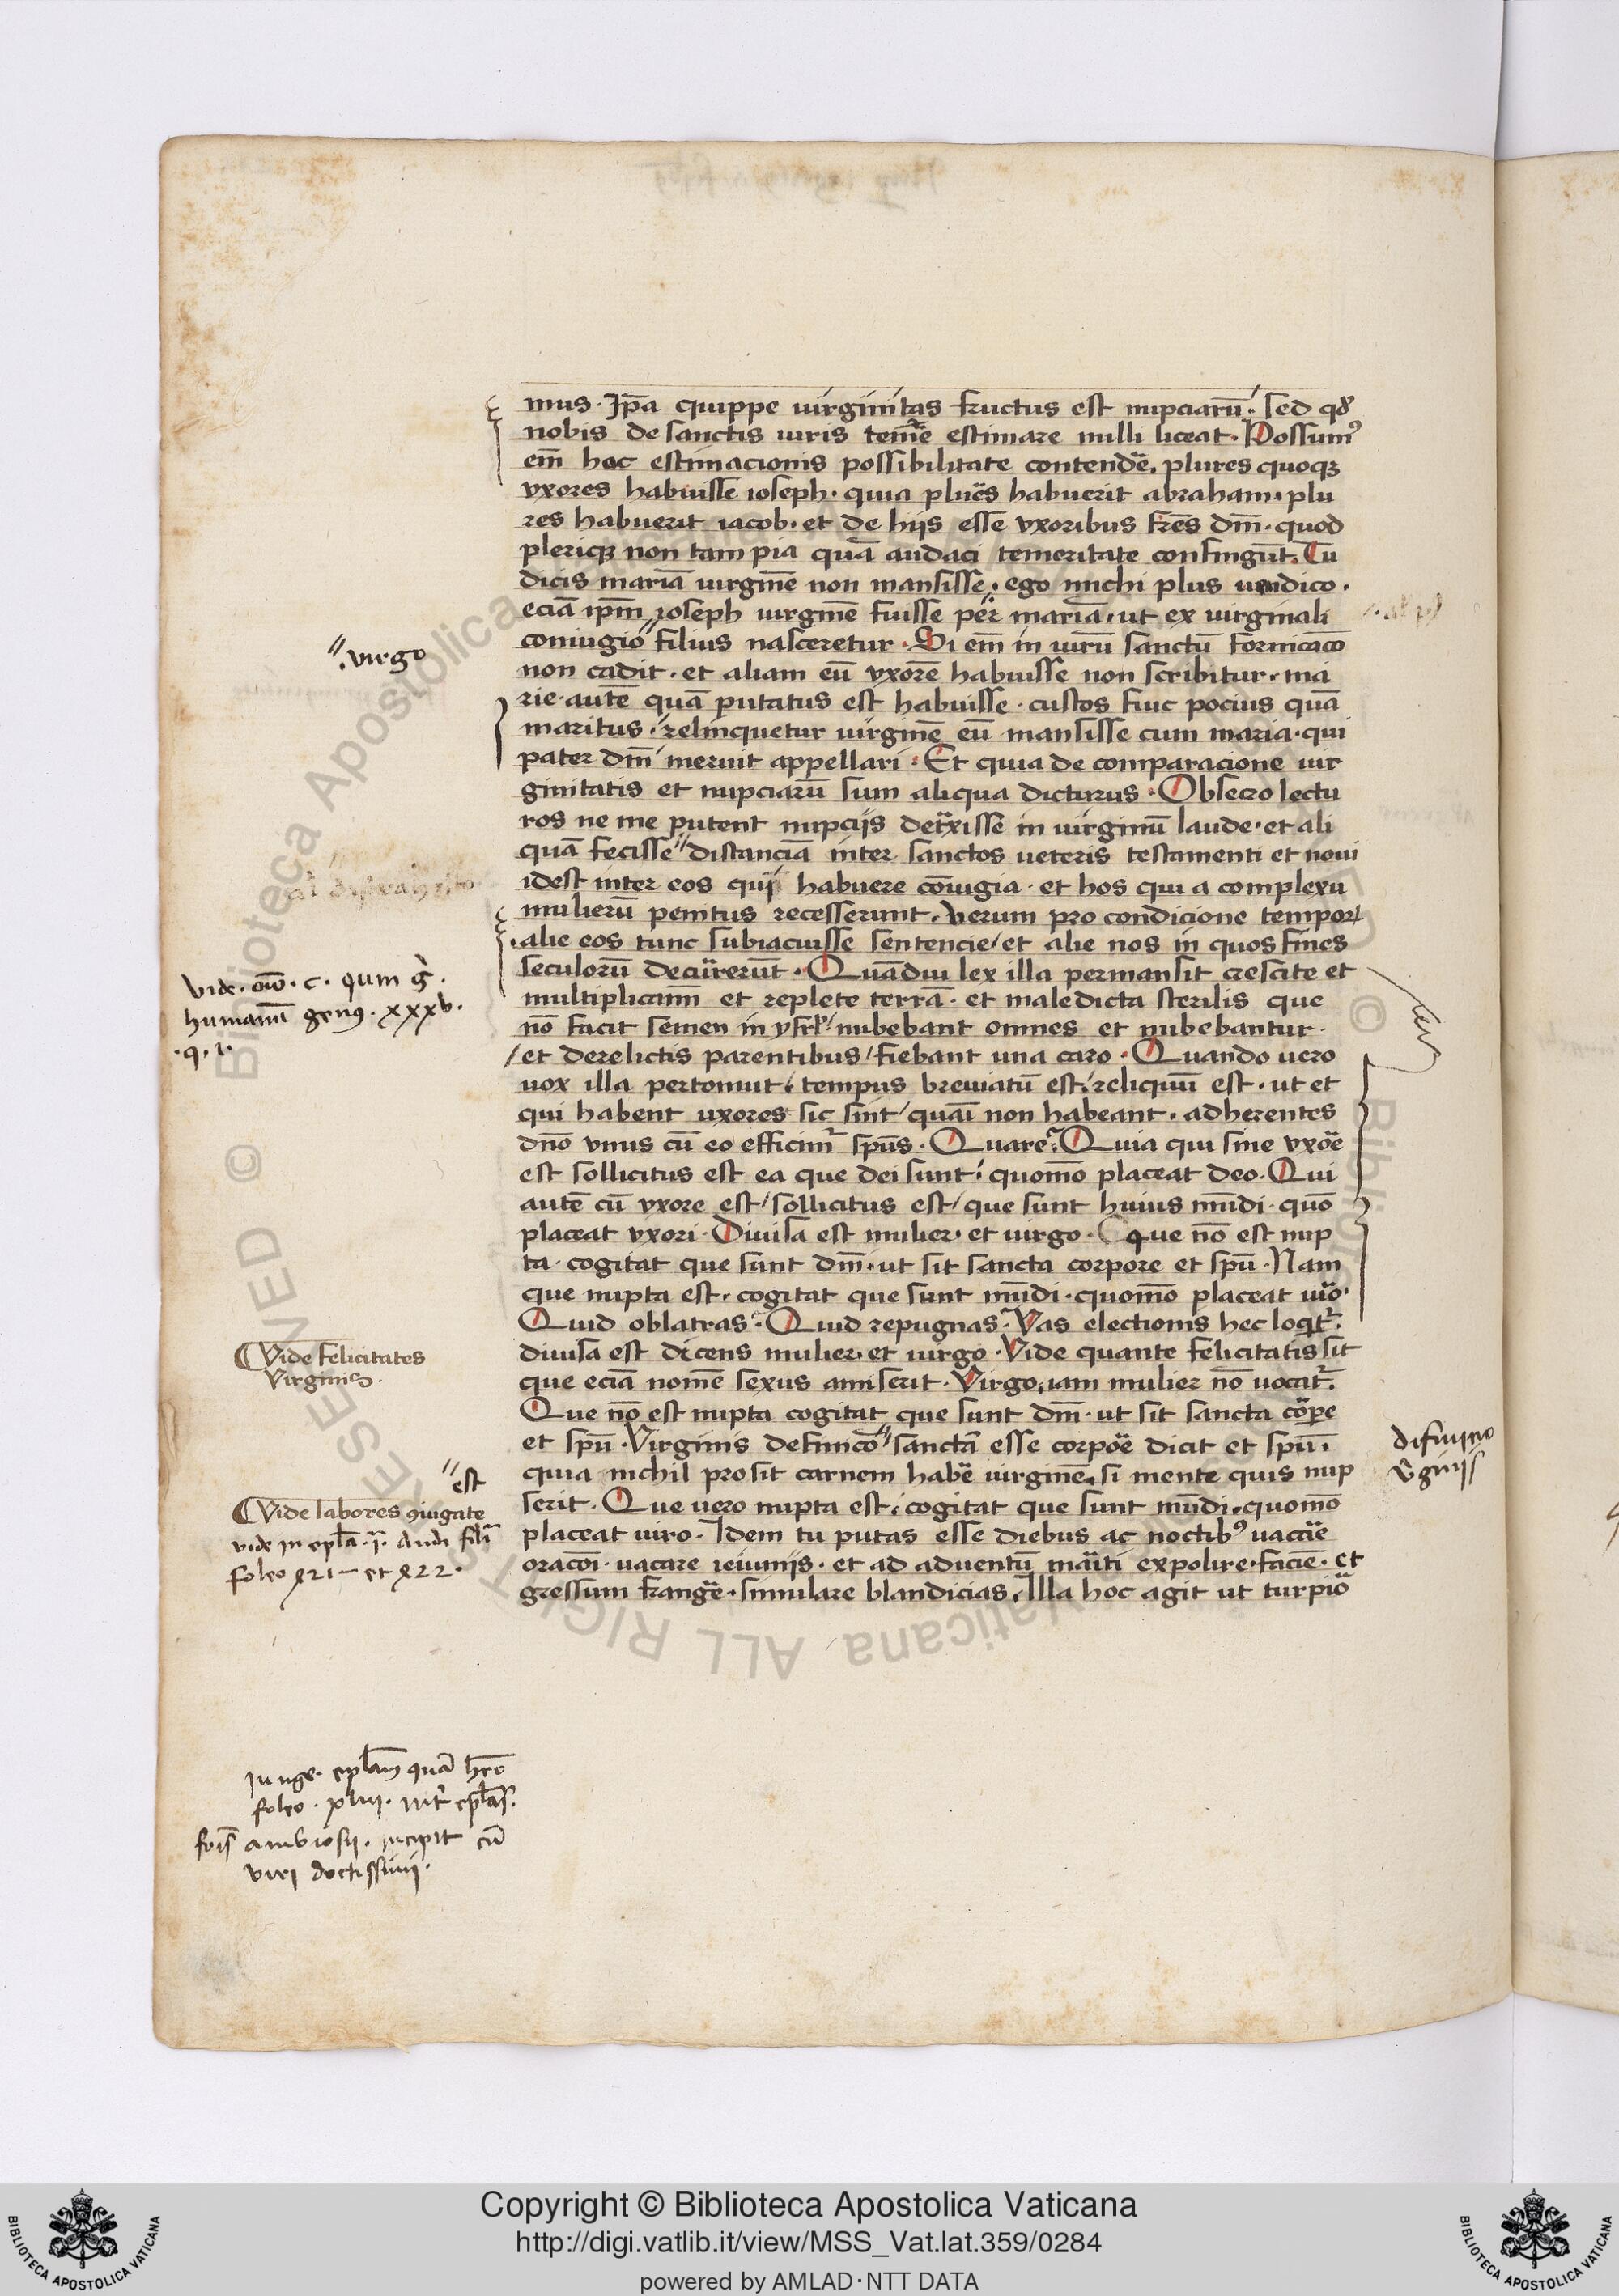 mus. Ip̄a quippe uirginitas fructus est nupciarū. Sed qđ
nobis de sanctis uiris tem̄e estimare nulli liceat. Possumꝰ
em̄ hoc estimacionis possibilitate contendē, plures quoqꝫ
vxores habuisse ioseph. quia plures habuerit abraham. plu
res habuerit iacob. et de hijs esse vxoribus fr̄es dm̄. quod
pleriqꝫ non tam pia quā audaci temeritate confingūt. Tu
dicis mariā uirginē non mansisse. ego michi plus uendico.
eciā ipm̄ ioseph uirginē fuisse per mariā. ut ex uirginali
coniugio filius nasceretur. Si em̄ in uirū sanctū fornicaco
non cadit. et aliam eū vxorē habuisse non scribitur. ma
rie. autē quā putatus est habuisse. custos fuc pocius quā
maritus. relinquetur uirginē eū mansisse cum maria. qui
pater dm̄ meruit appellari. Et quia de comparacione uir
ginitatis et nupciarū sum aliqua dicturus. Obsecro lectu
ros ne me putent nupcijs detraxisse in uirginū laude. et ali
quā fecisse distanciā inter sanctos ueteris testamenti et noui
idest inter eos qui habuere cōiugia. et hos qui a complexu
mulierū penitus recesserunt. Verum pro condicione tempor
alie eos tunc subiacuisse sentencie et alie nos in quos fines
seculorū decurrerūt. Quādiu lex illa permansit crescite et
multiplicam̄ et replete terrā. et maledicta sterilis que
nō facit semen in ysrl̄ nubebant omnes et nubebantur.
et derelictis parentibus fiebant una caro. Quando uero
uox illa pertonuit tempus breuiatū est reliquū est. ut et
qui habent uxores sic sint quāi non habeant. adherentes
dn̄o vnus cū eo efficimr̄ spūs. Quare. Quia qui sine vxore
est sollicitus est ea que dei sunt quomō placeat deo. Qui
autē cū vxore est sollicitus est que sunt huius mūdi. quō
placeat vxori. Diuisa est mulier. et uirgo. Que nō est nup
ta. cogitat que sunt dm̄. ut sit sancta corpore et spū. Nam
que nupta est. cogitat que sunt mūdi. quomō placeat uiro.
Quid oblatras. Quid repugnas. Vas electionis hec loqt̄r.
diuisa est dicens mulier. et uirgo. Vide quante felicitatis sit
que eciā nomē sexus amiserit. Virgo iam mulier nō uocat̄r.
Que nō est nupta cogitat que sunt dm̄. ut sit sancta corpe
et spū. Virginis definico sanctā esse corpore dicit et spū.
quia nichil prosit carnem habē uirginē, si mente quis nup
serit. Que uero nupta est cogitat que sunt mūdi. quomō
placeat uiro. Idem tu putas esse diebus ac noctibꝰ uacare
oracōi. uacare ieiunijs. et ad aduentū mariti expolire. faciē. et
gressum frangere. simulare blandicias. Illa hoc agit ut turpior
virgo
humanū genꝰ. xxxv.
.q. 1.
Vide felicitates
Virginis.
est
Vide labores ꝯiugate
difinitio
v̄ginis
Iunge. epl̄am quā
foleo. xliii. int̄ epl̄as.
ambrosii. incipit cū
viri doctissimi.
Copyright © Biblioteca Apostolica Vaticana
http://digi.vatlib.it/view/MSS_Vat.lat.359/0284
powered by AMLAD·NTT DATA
BIBLIOTECA APOSTOLICA VATICANA
BIBLIOTECA APOSTOLICA VATICANA